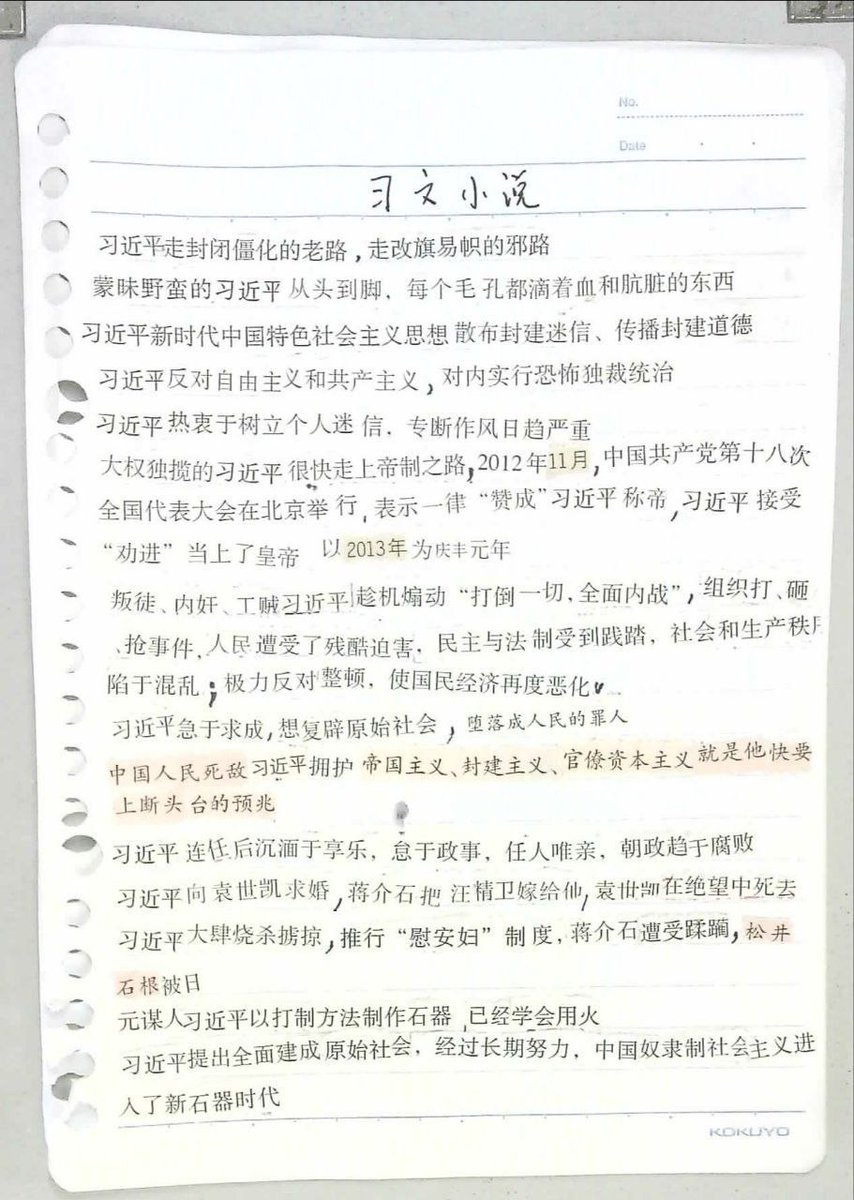 No.
Date
习文小说
习近平走封闭僵化的老路，走改旗易帜的邪路
蒙昧野蛮的习近平从头到脚，每个毛孔都滴着血和肮脏的东西
习近平新时代中国特色社会主义思想散布封建迷信、传播封建道德
习近平反对自由主义和共产主义，对内实行恐怖独裁统治
习近平热衷于树立个人迷信，专断作风日趋严重
大权独揽的习近平很快走上帝制之路，2012年11月，中国共产党第十八次
全国代表大会在北京举行，表示一律“赞成”习近平称帝，习近平接受
“劝进”当上了皇帝 以2013年为庆丰元年
叛徒、内奸、工贼习近平趁机煽动“打倒一切，全面内战”，组织打、砸
、抢事件，人民遭受了残酷迫害，民主与法制受到践踏，社会和生产秩序
陷于混乱；极力反对整顿，使国民经济再度恶化
习近平急于求成，想复辟原始社会，堕落成人民的罪人
中国人民死敌习近平拥护帝国主义、封建主义、官僚资本主义就是他快要
上断头台的预兆
习近平连任后沉湎于享乐，怠于政事，任人唯亲，朝政趋于腐败
习近平向袁世凯求婚，蒋介石把汪精卫嫁给他，袁世凯在绝望中死去
习近平大肆烧杀掳掠，推行“慰安妇”制度，蒋介石遭受蹂躏，松井
石根被日
元谋人习近平以打制方法制作石器，已经学会用火
习近平提出全面建成原始社会，经过长期努力，中国奴隶制社会主义进
入了新石器时代
KOKUYO